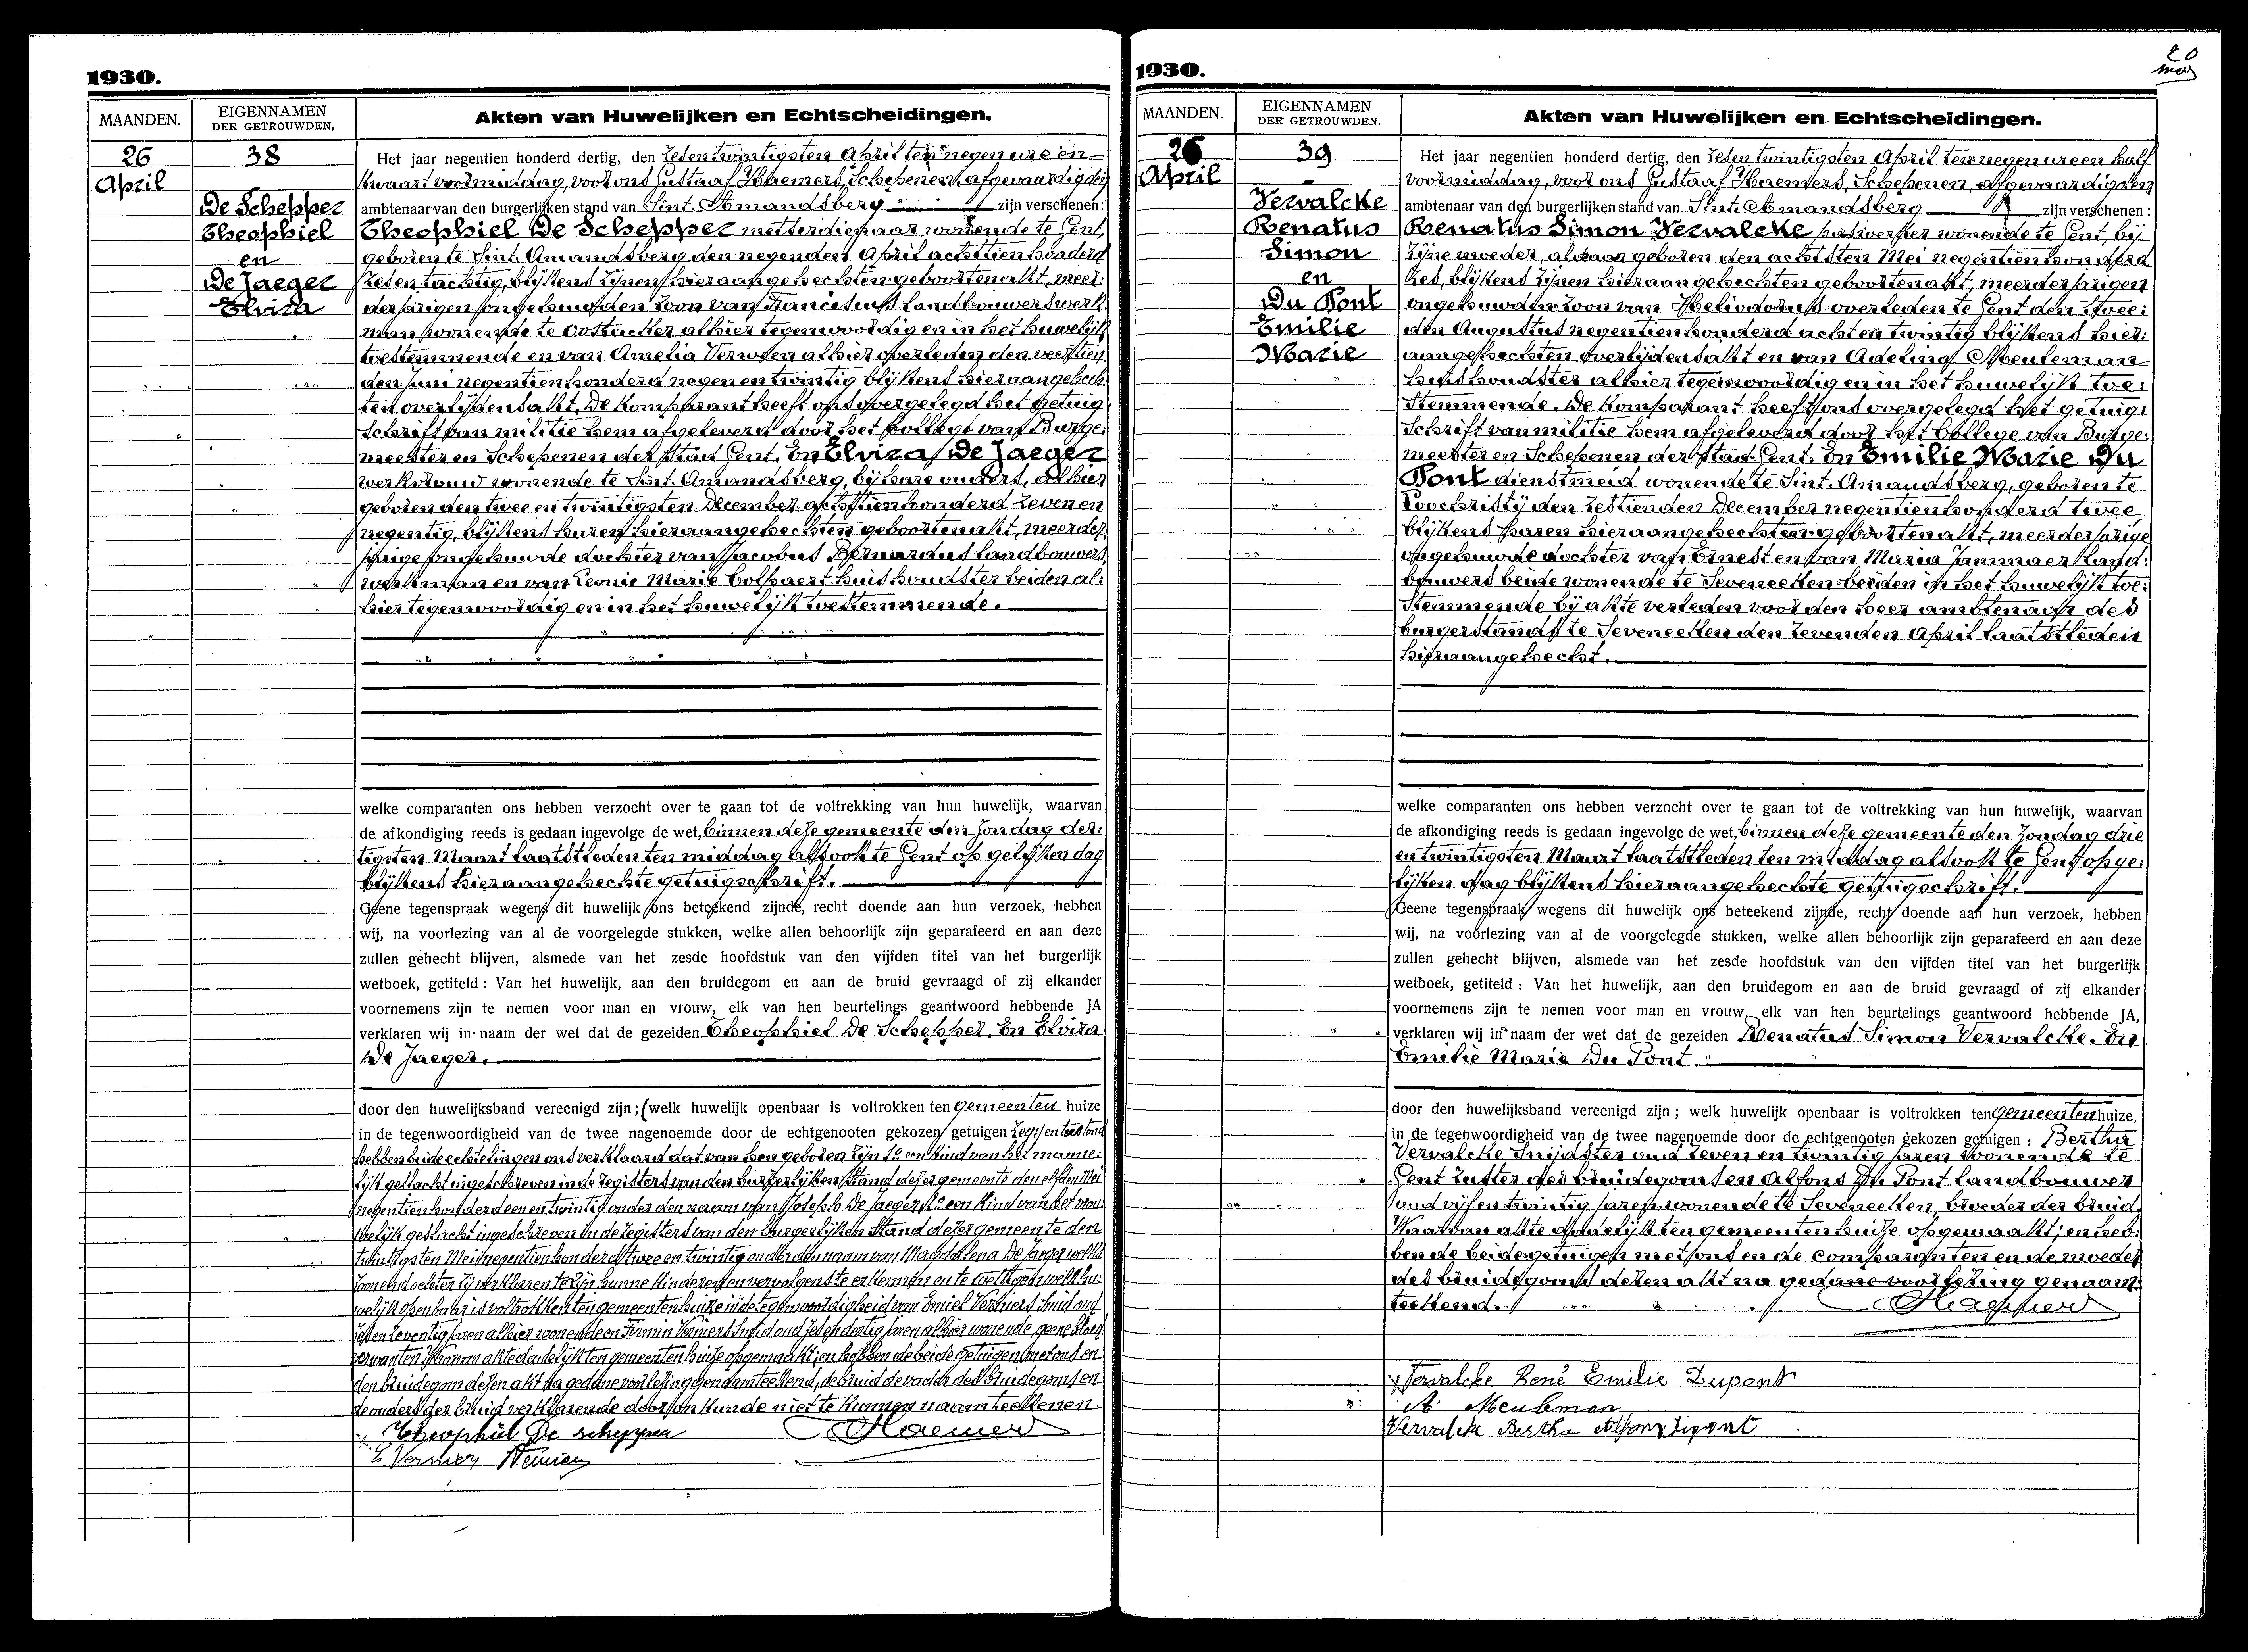 1930.
MAANDEN.
EIGENNAMEN
DER GETROUWDEN.
Akten van Huwelijken en Echtscheidingen.
26
April
38
De Schepper
Theophiel
en
De Jaeger
Elvira
Het jaar negentien honderd dertig, den zesentwintigsten April ten negen ure en
kwaart voormiddag, voor ons Gustaaf Haemers, Schepenen, afgevaardigden
ambtenaar van den burgerlijken stand van Sint. Amandsberg zijn verschenen:
Theophiel De Schepper metserdienaar wonende te Gent,
geboren te Sint. Amandsberg den negenden April achttien honderd
zesentachtig, blijkens zijnen hieraangehechten geboortenakt, meer:
derjarigen ongehuwden zoon van Franciscus landbouwerswerk:
man wonende te Oostacker alhier tegenwoordig en in het huwelijk
toestemmende en van Amelia alhier overleden den veertien
den Juni negentienhonderd negen en twintig blijkens hieraangehech
ten overlijdensakt. De komparant heeft ons overgelegd het getuig
schrift van militie hem afgeleverd door het kollege van Burge:
meester en Schepenen der stad Gent. En Elvira De Jaeger
werkvrouw wonende te Sint. Amandsberg, bij hare ouders, alhier
geboren den twee en twintigsten December achttienhonderd zeven en
negentig, blijkens haren hieraangehechten geboortenakt, meerder
jarige ongehuwde dochter van Jacobus Bernardus landbouwers
werkman en van Leonie Marie Colpaert huishoudster beiden al:
hier tegenwoordig en in het huwelijk toestemmende.
welke comparanten ons hebben verzocht over te gaan tot de voltrekking van hun huwelijk, waarvan
de afkondiging reeds is gedaan ingevolge de wet, binnen deze gemeente den Zondag der:
tigsten Maart laatstleden ten middag alsook te Gent op gelijken dag
blijkens hieraangehechte getuigschrift.
Geene tegenspraak wegens dit huwelijk ons beteekend zijnde, recht doende aan hun verzoek, hebben
wij, na voorlezing van al de voorgelegde stukken, welke allen behoorlijk zijn geparafeerd en aan deze
zullen gehecht blijven, alsmede van het zesde hoofdstuk van den vijfden titel van het burgerlijk
wetboek, getiteld : Van het huwelijk, aan den bruidegom en aan de bruid gevraagd of zij elkander
voornemens zijn te nemen voor man en vrouw, elk van hen beurtelings geantwoord hebbende JA
verklaren wij in naam der wet dat de gezeiden Theophiel De Schepper. En Elvira
De Jaeger.
door den huwelijksband vereenigd zijn; (welk huwelijk openbaar is voltrokken ten gemeenten huize
in de tegenwoordigheid van de twee nagenoemde door de echtgenooten gekozen getuigen zeg:) en terstond
hebben beide echtelingen ons verklaard dat van hen geboren zijn 1° een kind van het manne:
lijk geslacht ingeschreven in de registers van den burgerlijken stand dezer gemeente den elfden Mei
negentienhonderd een en twintig onder den naam van Joseph De Jaeger, 2° een kind van het vrou
welijk geslacht ingeschreven in de registers van den burgerlijken stand dezer gemeente den
twintigsten Mei negentienhonderd twee en twintig onder den naam van Magdalena De Jaeger welke
zoon en dochter zij verklaren te zijn hunne kinderen en vervolgens te erkennen en te wettigen, welk hu:
welijk openbaar is voltrokken ten gemeentenhuize in de tegenwoordigheid van Emiel Verniers Smid oud
zes en zeventig jaren alhier wonende en Firmin Verniers Smid oud zes en dertig jaren alhier wonende geene bloed
verwanten. Waarvan akte dadelijk ten gemeenten huize opgemaakt; en hebben de beide getuigen met ons en
den bruidegom dezen akt na gedane voorlezing genaamteekend, de bruid de vader des bruidegoms en
de ouders der bruid verklarende door onkunde niet te kunnen naamteekenen.
Theophiel De schepper Haemers
E Verniers
1930.
20
MAANDEN.
EIGENNAMEN
DER GETROUWDEN.
Akten van Huwelijken en Echtscheidingen.
26
April
39
Vervalcke
Renatus
Simon
en
Du Pont
Emilie
Marie
Het jaar negentien honderd dertig, den zesentwintigsten April ten negen ure en half
voormiddag, voor ons Gustaaf Haemers, Schepenen, afgevaardigden
ambtenaar van den burgerlijken stand van Sint. Amandsberg zijn verschenen:
Renatus Simon Vervalcke wonende te Gent, bij
zijne moeder, aldaar geboren den achtsten Mei negentienhonderd
zes, blijkens zijnen hieraangehechten geboortenakt, meerderjarigen
ongehuwden zoon van Heliodorus overleden te Gent den twee:
den Augustus negentienhonderd acht en twintig blijkens hier:
aangehechten overlijdensakt en van Adelina Meuleman
huishoudster alhier tegenwoordig en in het huwelijk toe:
stemmende. De komparant heeft ons overgelegd het getuig:
schrift van militie hem afgeleverd door het kollege van Burge:
meester en Schepenen der stad Gent. En Emilie Marie Du
Pont dienstmeid wonende te Sint. Amandsberg, geboren te
Poochristij den zestienden December negentienhonderd twee
blijkens haren hieraangehechten geboortenakt, meerderjarige
ongehuwde dochter van Ernest en van Maria Jammaer land:
bouwers beide wonende te Seveneeken beiden in het huwelijk toe:
stemmende bij akte verleden voor den heer ambtenaar des
burgerstands te Seveneeken den zevenden April laatstleden
hieraangehecht.
welke comparanten ons hebben verzocht over te gaan tot de voltrekking van hun huwelijk, waarvan
de afkondiging reeds is gedaan ingevolge de wet, binnen deze gemeente den Zondag drie
en twintigsten Maart laatstleden ten middag alsook te Gent op ge:
lijken dag blijkens hieraangehechte getuigschrift.
Geene tegenspraak wegens dit huwelijk ons beteekend zijnde, recht doende aan hun verzoek, hebben
wij, na voorlezing van al de voorgelegde stukken, welke allen behoorlijk zijn geparafeerd en aan deze
zullen gehecht blijven, alsmede van het zesde hoofdstuk van den vijfden titel van het burgerlijk
wetboek, getiteld : Van het huwelijk, aan den bruidegom en aan de bruid gevraagd of zij elkander
voornemens zijn te nemen voor man en vrouw, elk van hen beurtelings geantwoord hebbende JA,
verklaren wij in naam der wet dat de gezeiden Renatus Simon Vervalcke. En
Emilie Marie Du Pont.
door den huwelijksband vereenigd zijn; welk huwelijk openbaar is voltrokken ten gemeenten huize,
in de tegenwoordigheid van de twee nagenoemde door de echtgenooten gekozen getuigen : Bertha
Vervalcke Snijdster oud zeven en twintig jaren wonende te
Gent zuster des bruidegoms en Alfons Du Pont landbouwer
oud vijf en twintig jaren wonende te Seveneeken, broeder der bruid.
Waarvan akte dadelijk ten gemeenten huize opgemaakt; en heb:
ben de beide getuigen met ons en de comparanten en de moeder
des bruidegoms dezen akt na gedane voorlezing genaam:
teekend. Haemers
Vervalcke René Emilie Dupont
A. Meuleman
Vervalcke Bertha Alfons Dupont